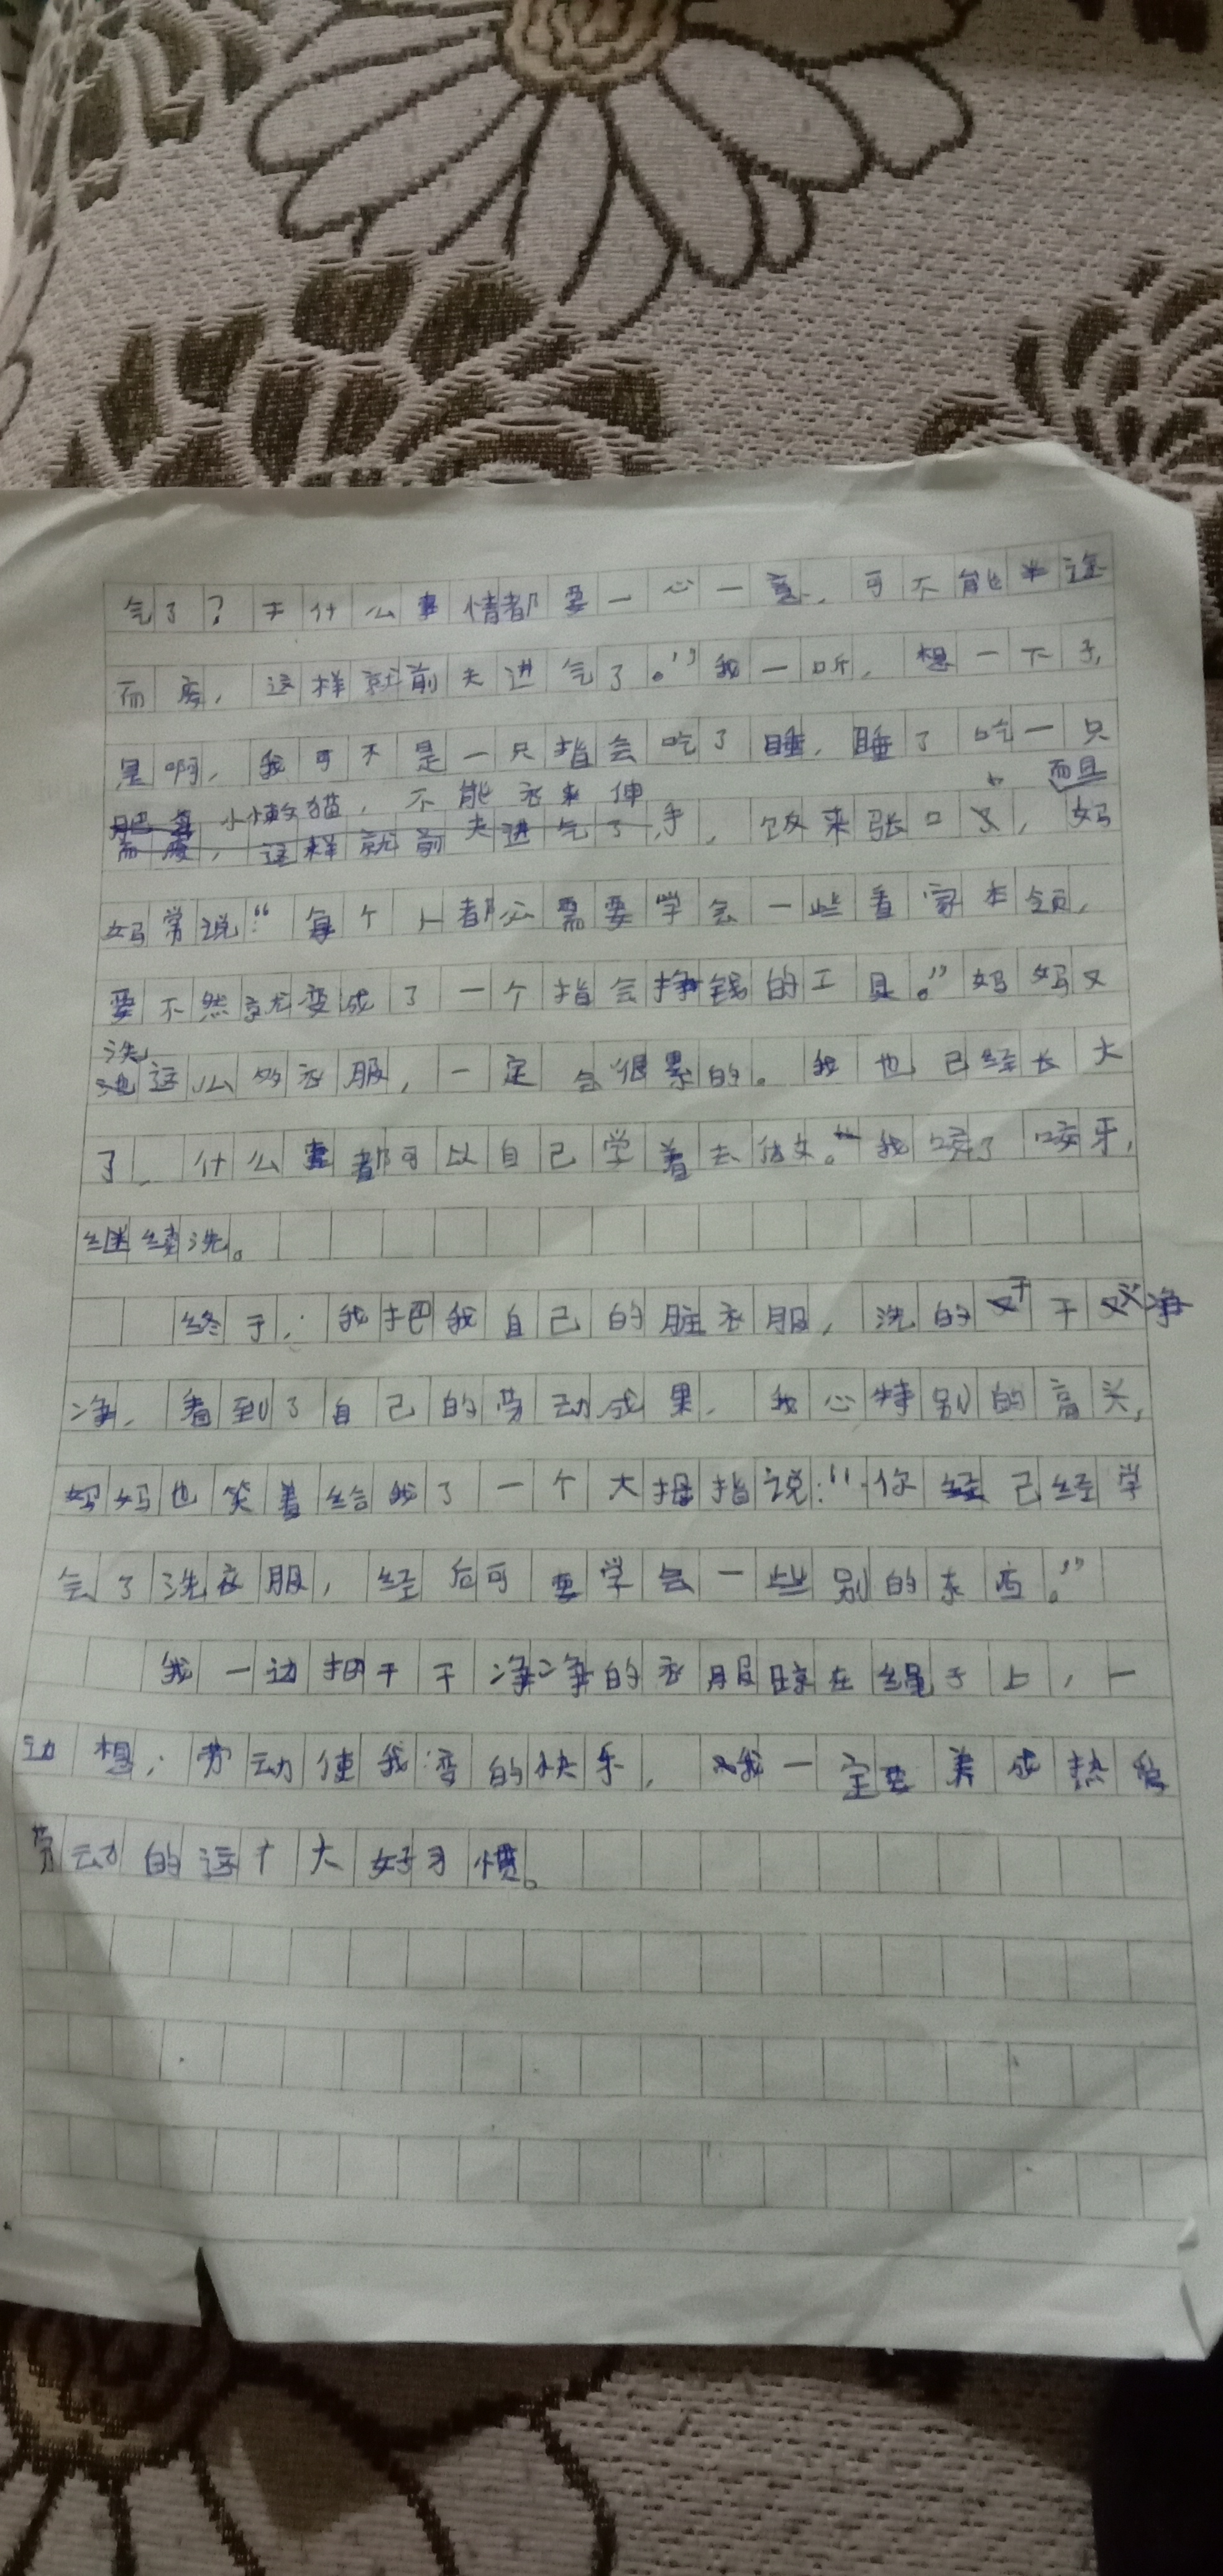 气了？干什么事情都要一心一意，可不能半途
而废，这样就前夫进气了。”我一听，想一下子，
是啊，我可不是一只指会吃了睡，睡了吃一只
小懒猫，不能衣来伸
手，饭来张口，而且妈
妈常说：“每个人都必需要学会一些看家本领，
要不然就变成了一个指会挣钱的工具。”妈妈又
洗这么多衣服，一定会很累的。我也已经长大
了，什么事都可以自己学着去做。“我咬了咬牙，
继续洗。
终于，我把我自己的脏衣服，洗的干干净
净，看到了自己的劳动成果，我心特别的高兴，
妈妈也笑着给我了一个大拇指说：“你已经学
会了洗衣服，经后可要学会一些别的东西。”
我一边把干干净净的衣服晾在绳子上，一
边想：劳动使我变的快乐，我一定要养成热爱
劳动的这个大好习惯。